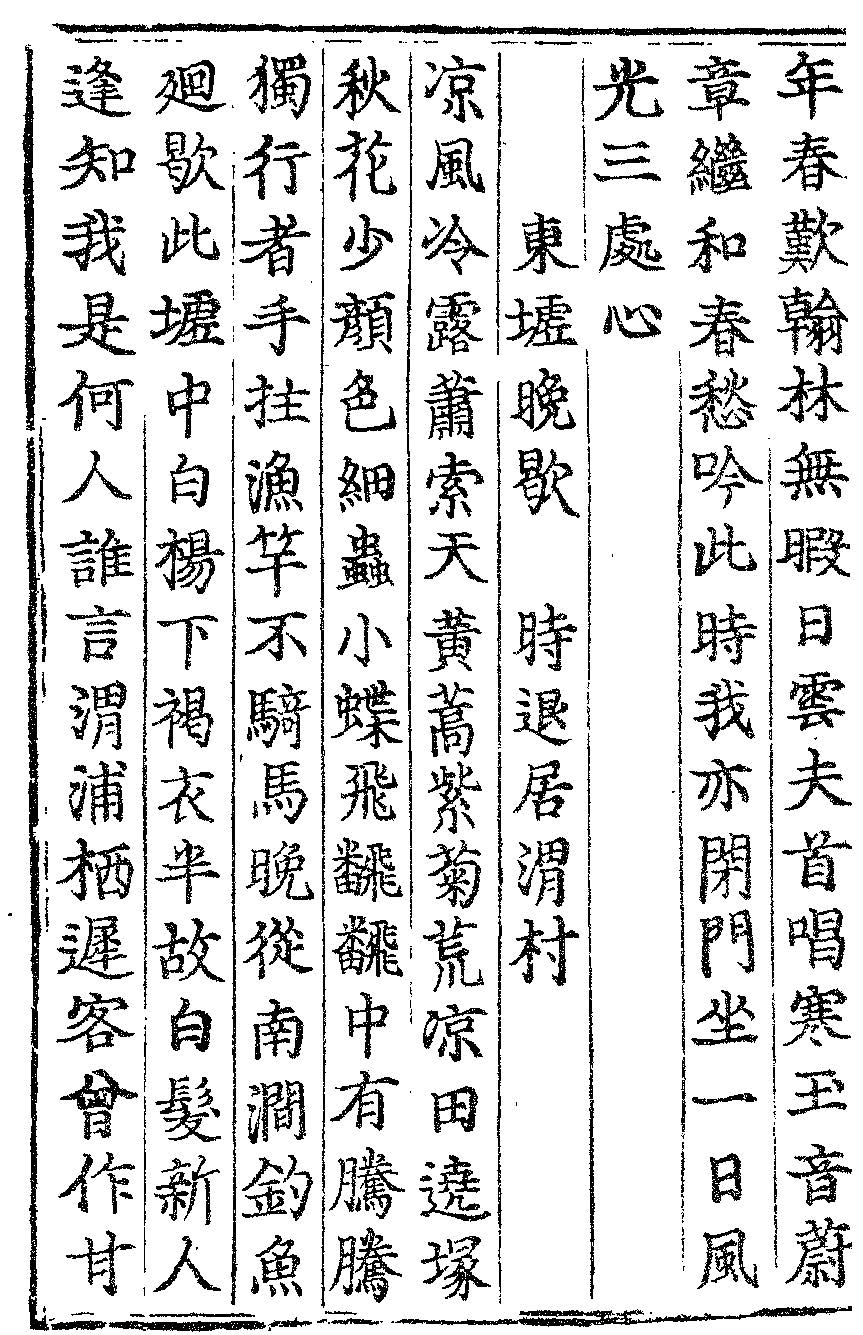 年春歎翰林無暇日雲夫首唱寒玉音蔚
章繼和春愁吟此時我亦閉門坐一日風
光三處心
東墟晚歇 時退居渭村
凉風冷露蕭索天黄蒿紫菊荒凉田遶塚
秋花少顔色細蟲小蝶飛飜飜中有騰騰
獨行者手拄漁竿不騎馬晚從南澗釣魚
廻歇此墟中白楊下褐衣半故白髮新人
逢知我是何人誰言渭浦栖遲客曾作甘